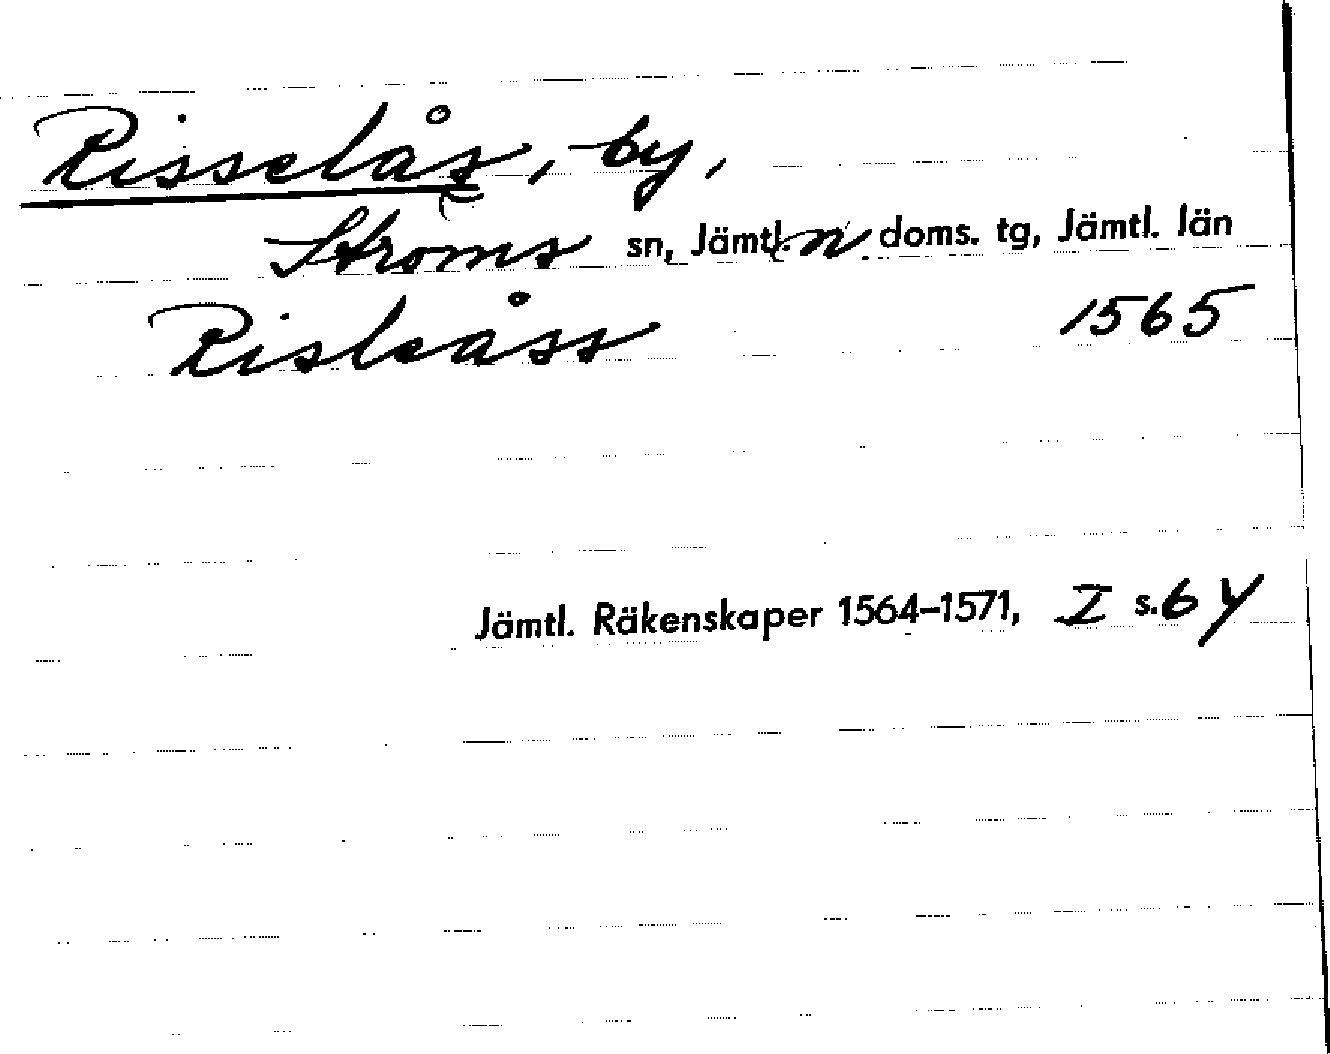 Risselås, by,
Ströms sn, Jämtl. n doms. tg, Jämtl. län
Risleåss 1565
Jämtl. Räkenskaper 1564–1571, I s. 64